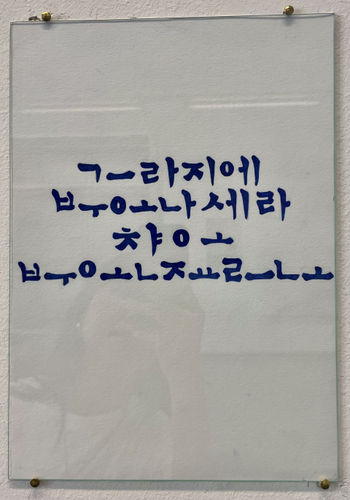 ㄱㅡ라지에
ㅂㅜㅇㅗ나 세라
챠ㅇㅗ
ㅂㅜㅇㅗㄴㅈㅛㄹㅡㄴㅗ